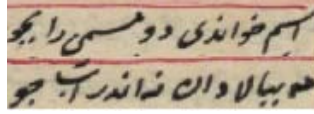 اسم خواندی رو مسمی را بجو
مه ببالا دان نه اندر آب جو